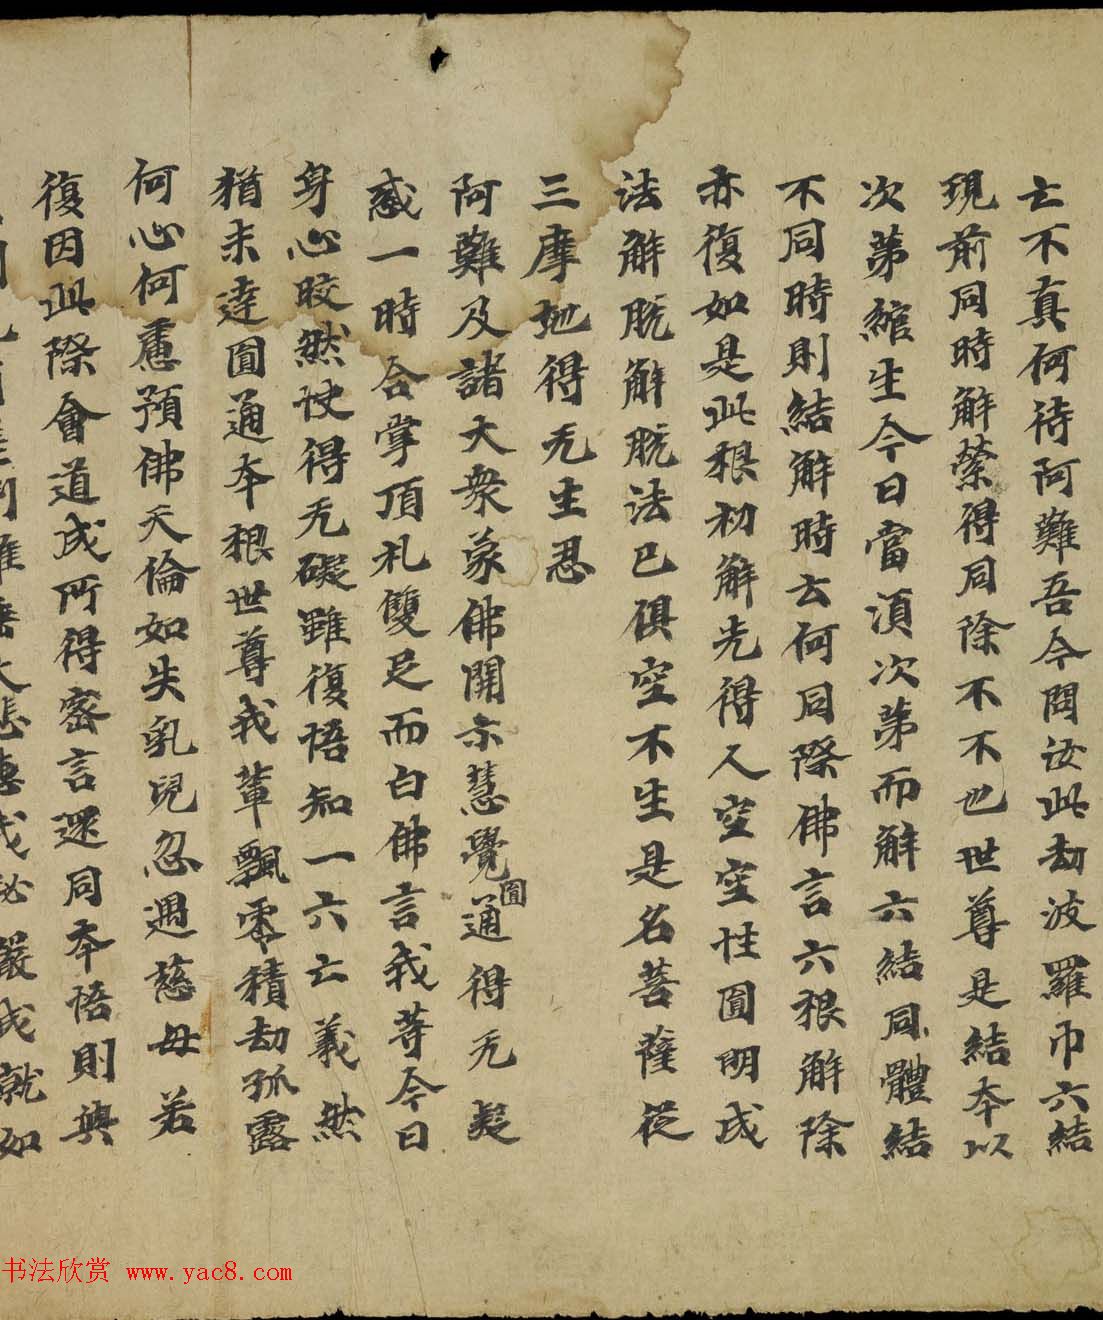 亡不真何待阿難吾今問汝此劫波羅巾六結
現前同時解縈得同除不不也世尊是結本以
次第綰生今日當須次第而解六結同體結
不同時則結解時云何同除佛言六根解除
亦復如是此根初解先得人空空性圓明成
法解脫解脫法已俱空不生是名菩薩從
三摩地得无生忍
阿難及諸大衆蒙佛開示慧覺圓通得无疑
惑一時合掌頂礼雙足而白佛言我等今日
身心皎然快得无礙雖復悟知一六亡義然
猶未達圓通本根世尊我輩飄零積劫孤露
何心何慮預佛天倫如失乳兒忽遇慈母若
復因此際會道成所得密言還同本悟則與
大悲惠我祕嚴成就如
书法欣赏 www.yac8.com